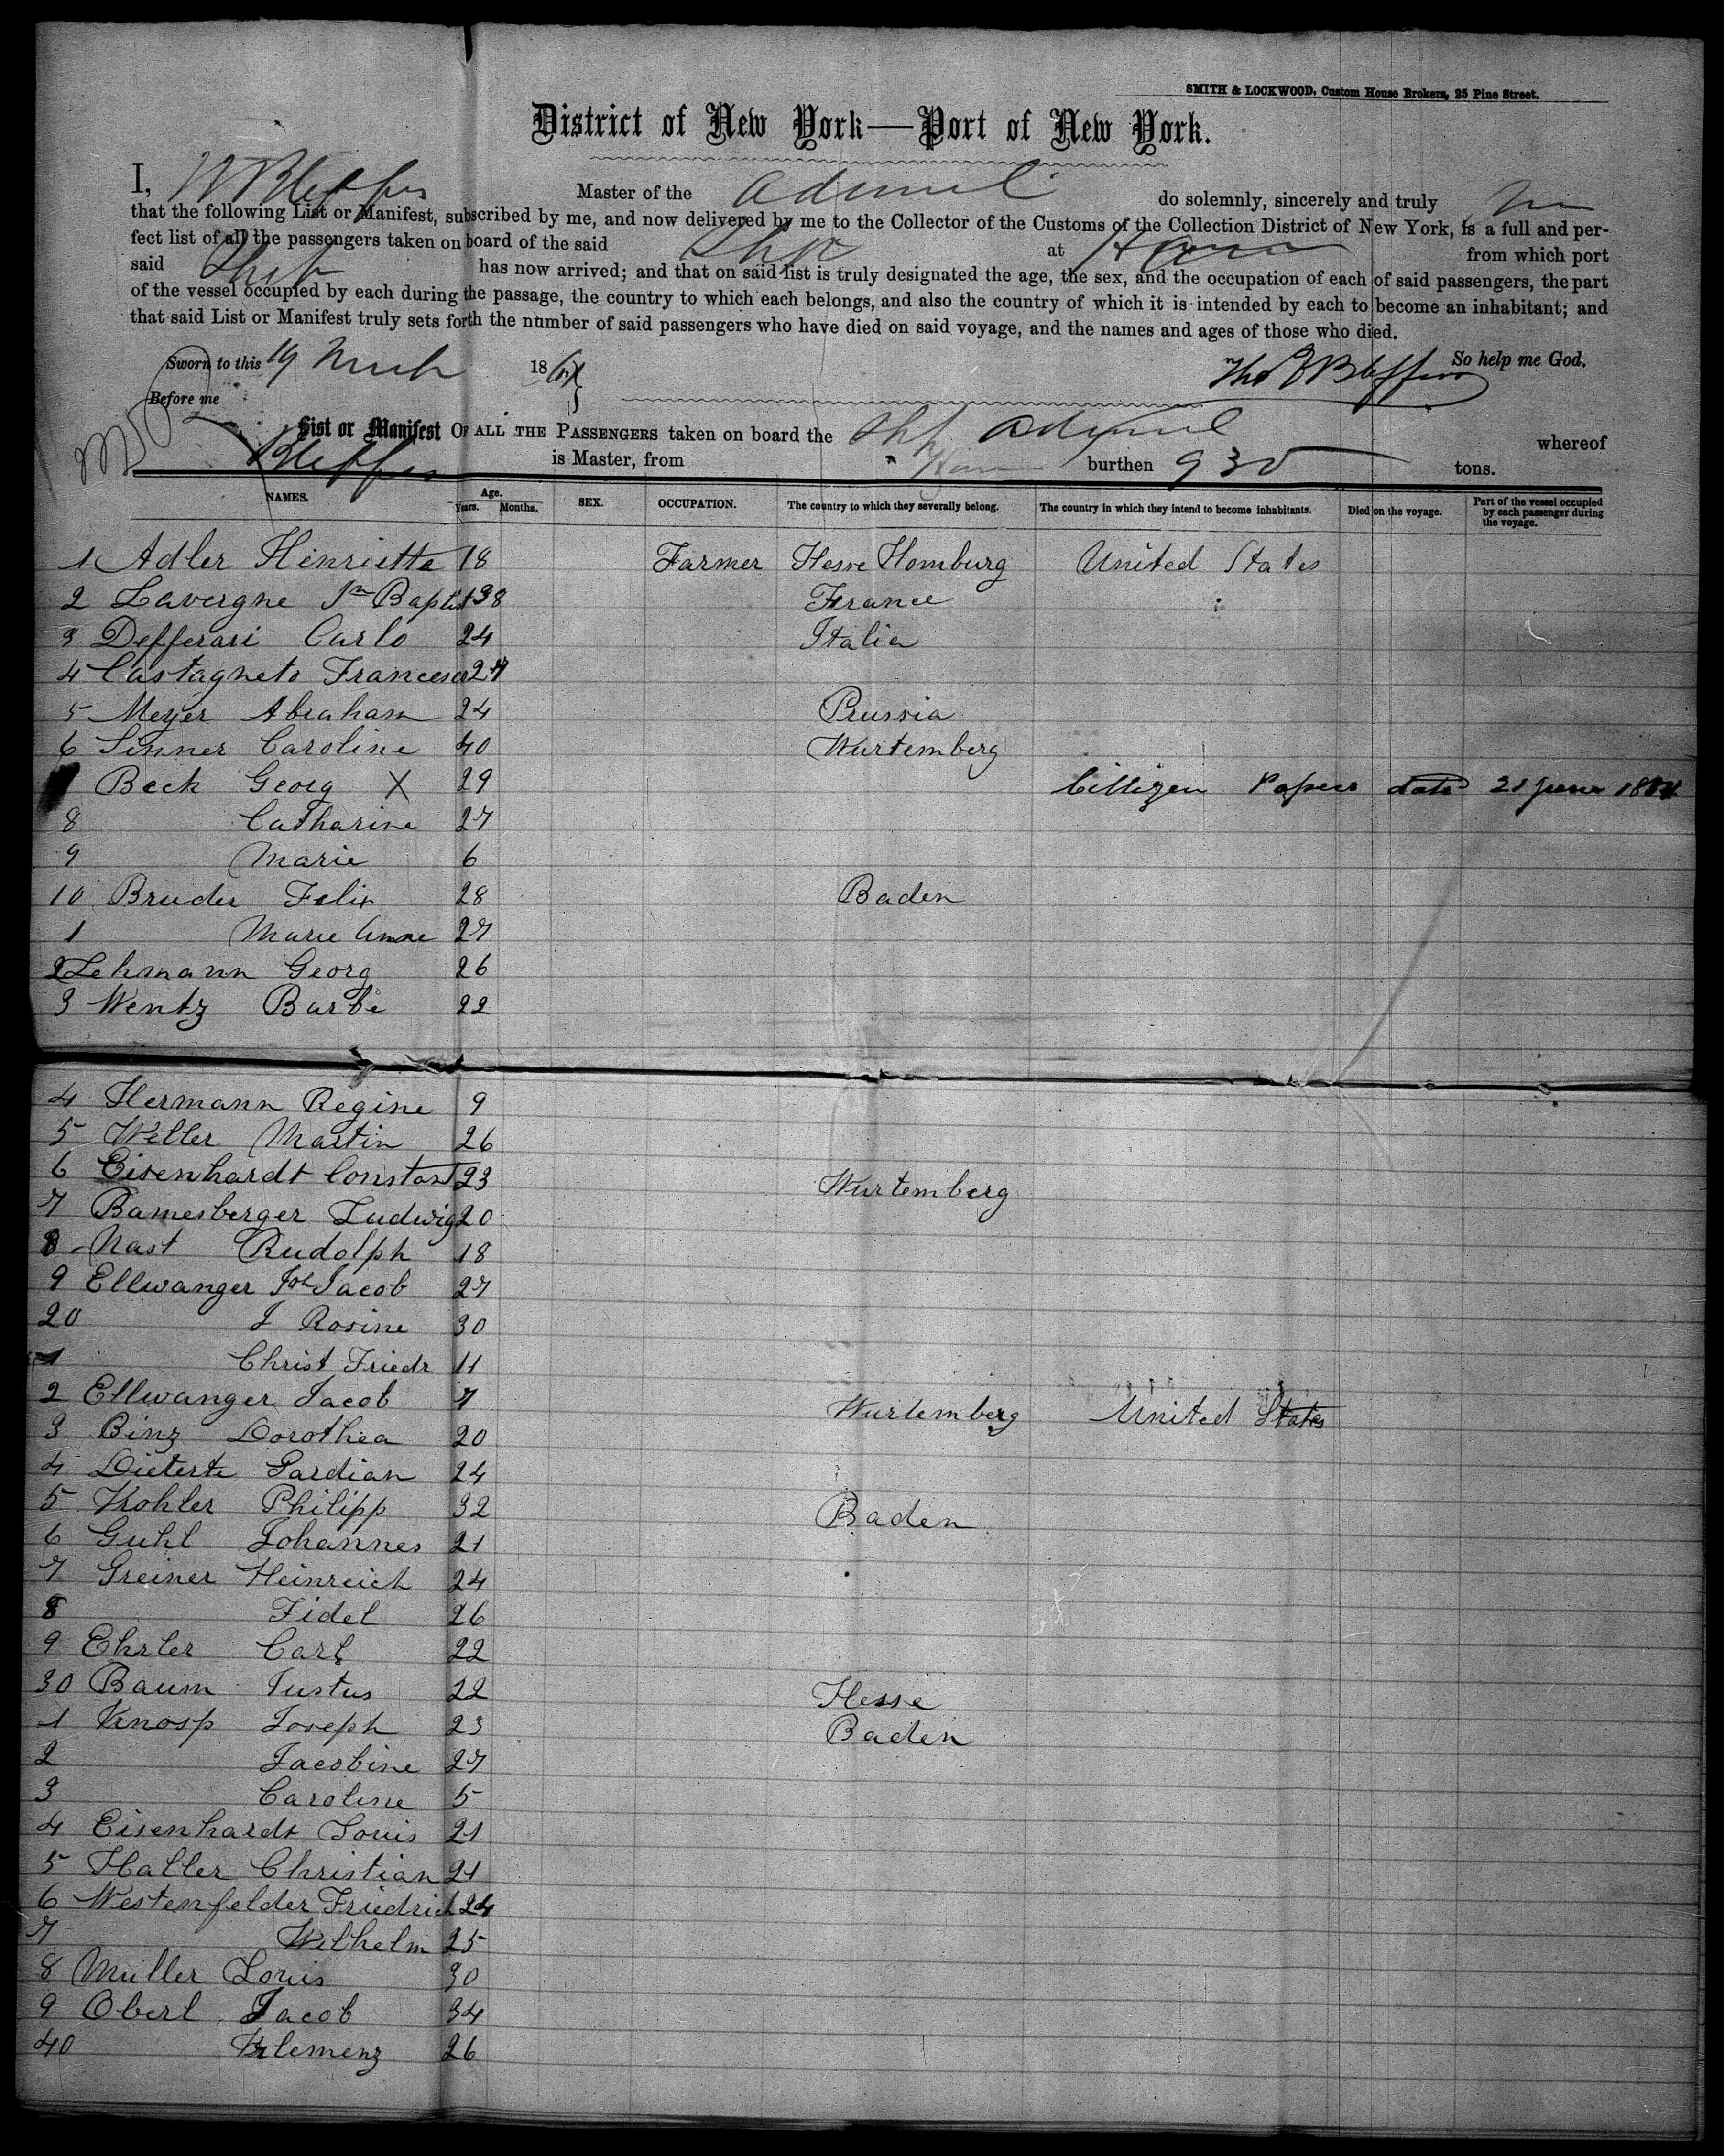 SMITH & LOCKWOOD, Custom House Brokers, 25 Pine Street.
District of New York—Port of New York.
I, Master of the do solemnly, sincerely and truly
that the following List or Manifest, subscribed by me, and now delivered by me to the Collector of the Customs of the Collection District of New York, is a full and per-
fect list of all the passengers taken on board of the said Ship at from which port
said Ship has now arrived; and that on said list is truly designated the age, the sex, and the occupation of each of said passengers, the part
of the vessel occupied by each during the passage, the country to which each belongs, and also the country of which it is intended by each to become an inhabitant; and
that said List or Manifest truly sets forth the number of said passengers who have died on said voyage, and the names and ages of those who died.
Sworn to this 19 186 So help me God.
Before me
List or Manifest OF ALL THE PASSENGERS taken on board the Ship whereof
is Master, from burthen 930 tons.
NAMES. Age. Years. Months. SEX. OCCUPATION. The country to which they severally belong. The country in which they intend to become inhabitants. Died on the voyage. Part of the vessel occupied by each passenger during the voyage.
1 Adler Henriette 18 Farmer Hesse Homburg United States
2 Lavergne Jn Baptist 38 France
3 Defferari Carlo 24 Italia
4 Castagneto Francesco
5 Meyer Abraham 24 Prussia
6 Sinner Caroline 40 Wurtemberg
Beck Georg X 29 Citizen Papers date 21 June
8 Catharine 27
9 Marie 6
10 Bruder Felix 28 Baden
1 Marie Anne 27
2 Lehmann Georg 26
3 Wentz Barbe 22
4 Hermann Regine 9
5 Weller Martin 26
6 Eisenhardt Constant 23 Wurtemberg
7 Bamesberger Ludwig 20
8 Nast Rudolph 18
9 Ellwanger Joh Jacob 27
20 J Rosine 30
1 Christ Friedr 11
2 Ellwanger Jacob 7 Wurtemberg United States
3 Binz Dorothea 20
4 Dieterte Gardian 24
5 Kohler Philipp 32 Baden
6 Guhl Johannes 21
7 Greiner Heinreich 24
8 Fidel 26
9 Ehrler Carl 22
30 Baum Justus 22 Hesse
1 Knosp Joseph 23 Baden
2 Jacobine 27
3 Caroline 5
4 Eisenhardt Louis 21
5 Haller Christian 21
6 Westenfelder Friedrich 24
7 Wilhelm 25
8 Muller Louis 30
9 Oberl Jacob 34
40 Klemenz 26